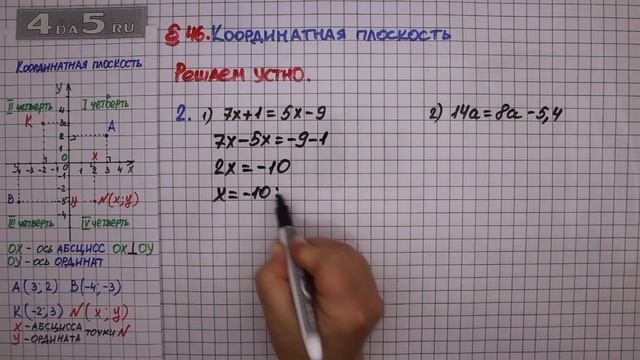 4DA5.RU
§ 46. КООРДИНАТНАЯ ПЛОСКОСТЬ
РЕШАЕМ УСТНО.
2. 1) 7x+1=5x-9
7x-5x=-9-1
2x=-10
x=-10:
2) 14a=8a-5,4
КООРДИНАТНАЯ ПЛОСКОСТЬ
II ЧЕТВЕРТЬ y I ЧЕТВЕРТЬ
K A
x
-4 -3 -2 -1 0 1 2 3 4 x
B y N(x;y)
III ЧЕТВЕРТЬ IV ЧЕТВЕРТЬ
OX - ОСЬ АБСЦИСС OX⊥OY
OY - ОСЬ ОРДИНАТ
A(3;2) B(-4;-3)
K(-2;3) N(x;y)
X - АБСЦИССА ТОЧКИ N
Y - ОРДИНАТА